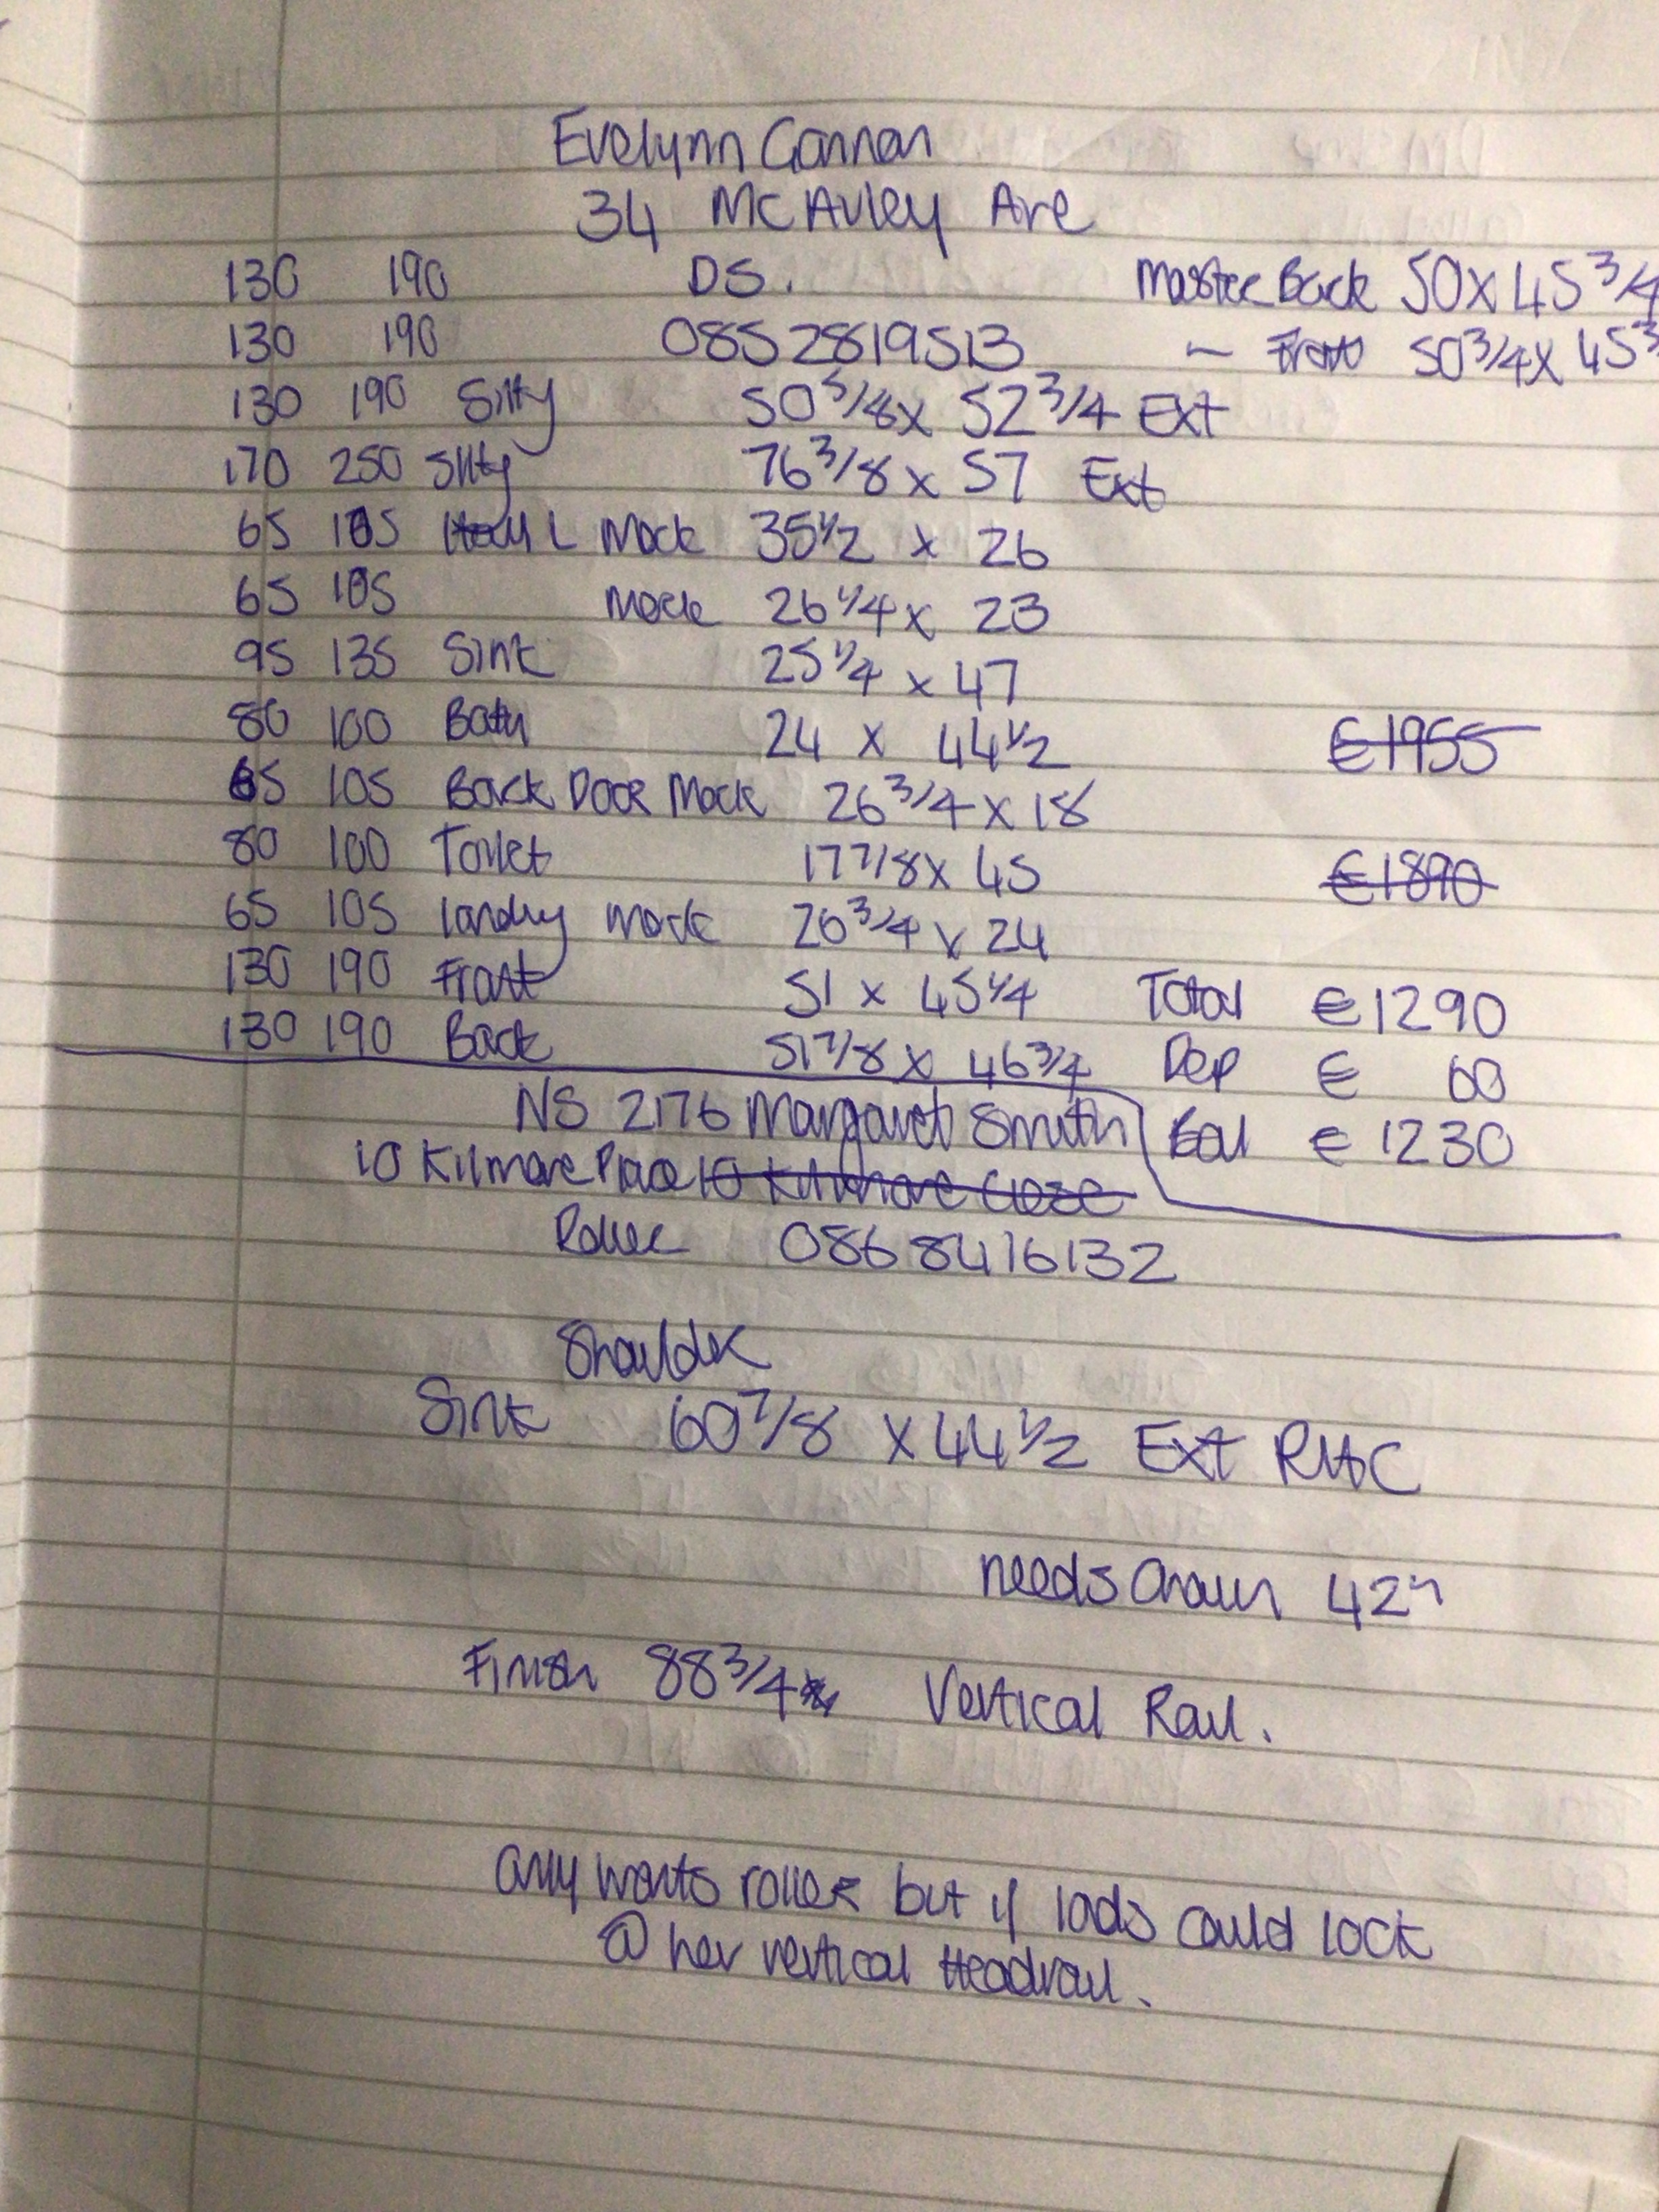 Evelynn Gannon
34 McAuley Ave
130 190 DS. Master Back 50 x 45 3/4
130 190 0852819513 - Front 50 3/4 x 45 3
130 190 Sitty 50 5/8 x 52 3/4 Ext
170 250 Sitty 76 3/8 x 57 Ext
65 105 L Mock 35 1/2 x 26
65 105 Mock 26 1/4 x 23
95 135 Sink 25 1/4 x 47
80 100 Bath 24 x 44 1/2 €1955
65 105 Back Door Mock 26 3/4 x 18
80 100 Toilet 17 7/8 x 45 €1890
65 105 landry mock 26 3/4 x 24
130 190 Front 51 x 45 1/4 Total €1290
130 190 Back 51 7/8 x 46 3/4 Dep € 60
NS 2176 Margaret Smith Bal € 1230
10 Kilmore Place 10 Kilmore Close
Roller 0868416132
Shoulder
Sink 60 7/8 x 44 1/2 Ext RHC
needs Chain 42"
Finish 88 3/4 Vertical Rail.
only wants roller but if lads could lock
@ her vertical Headrail.